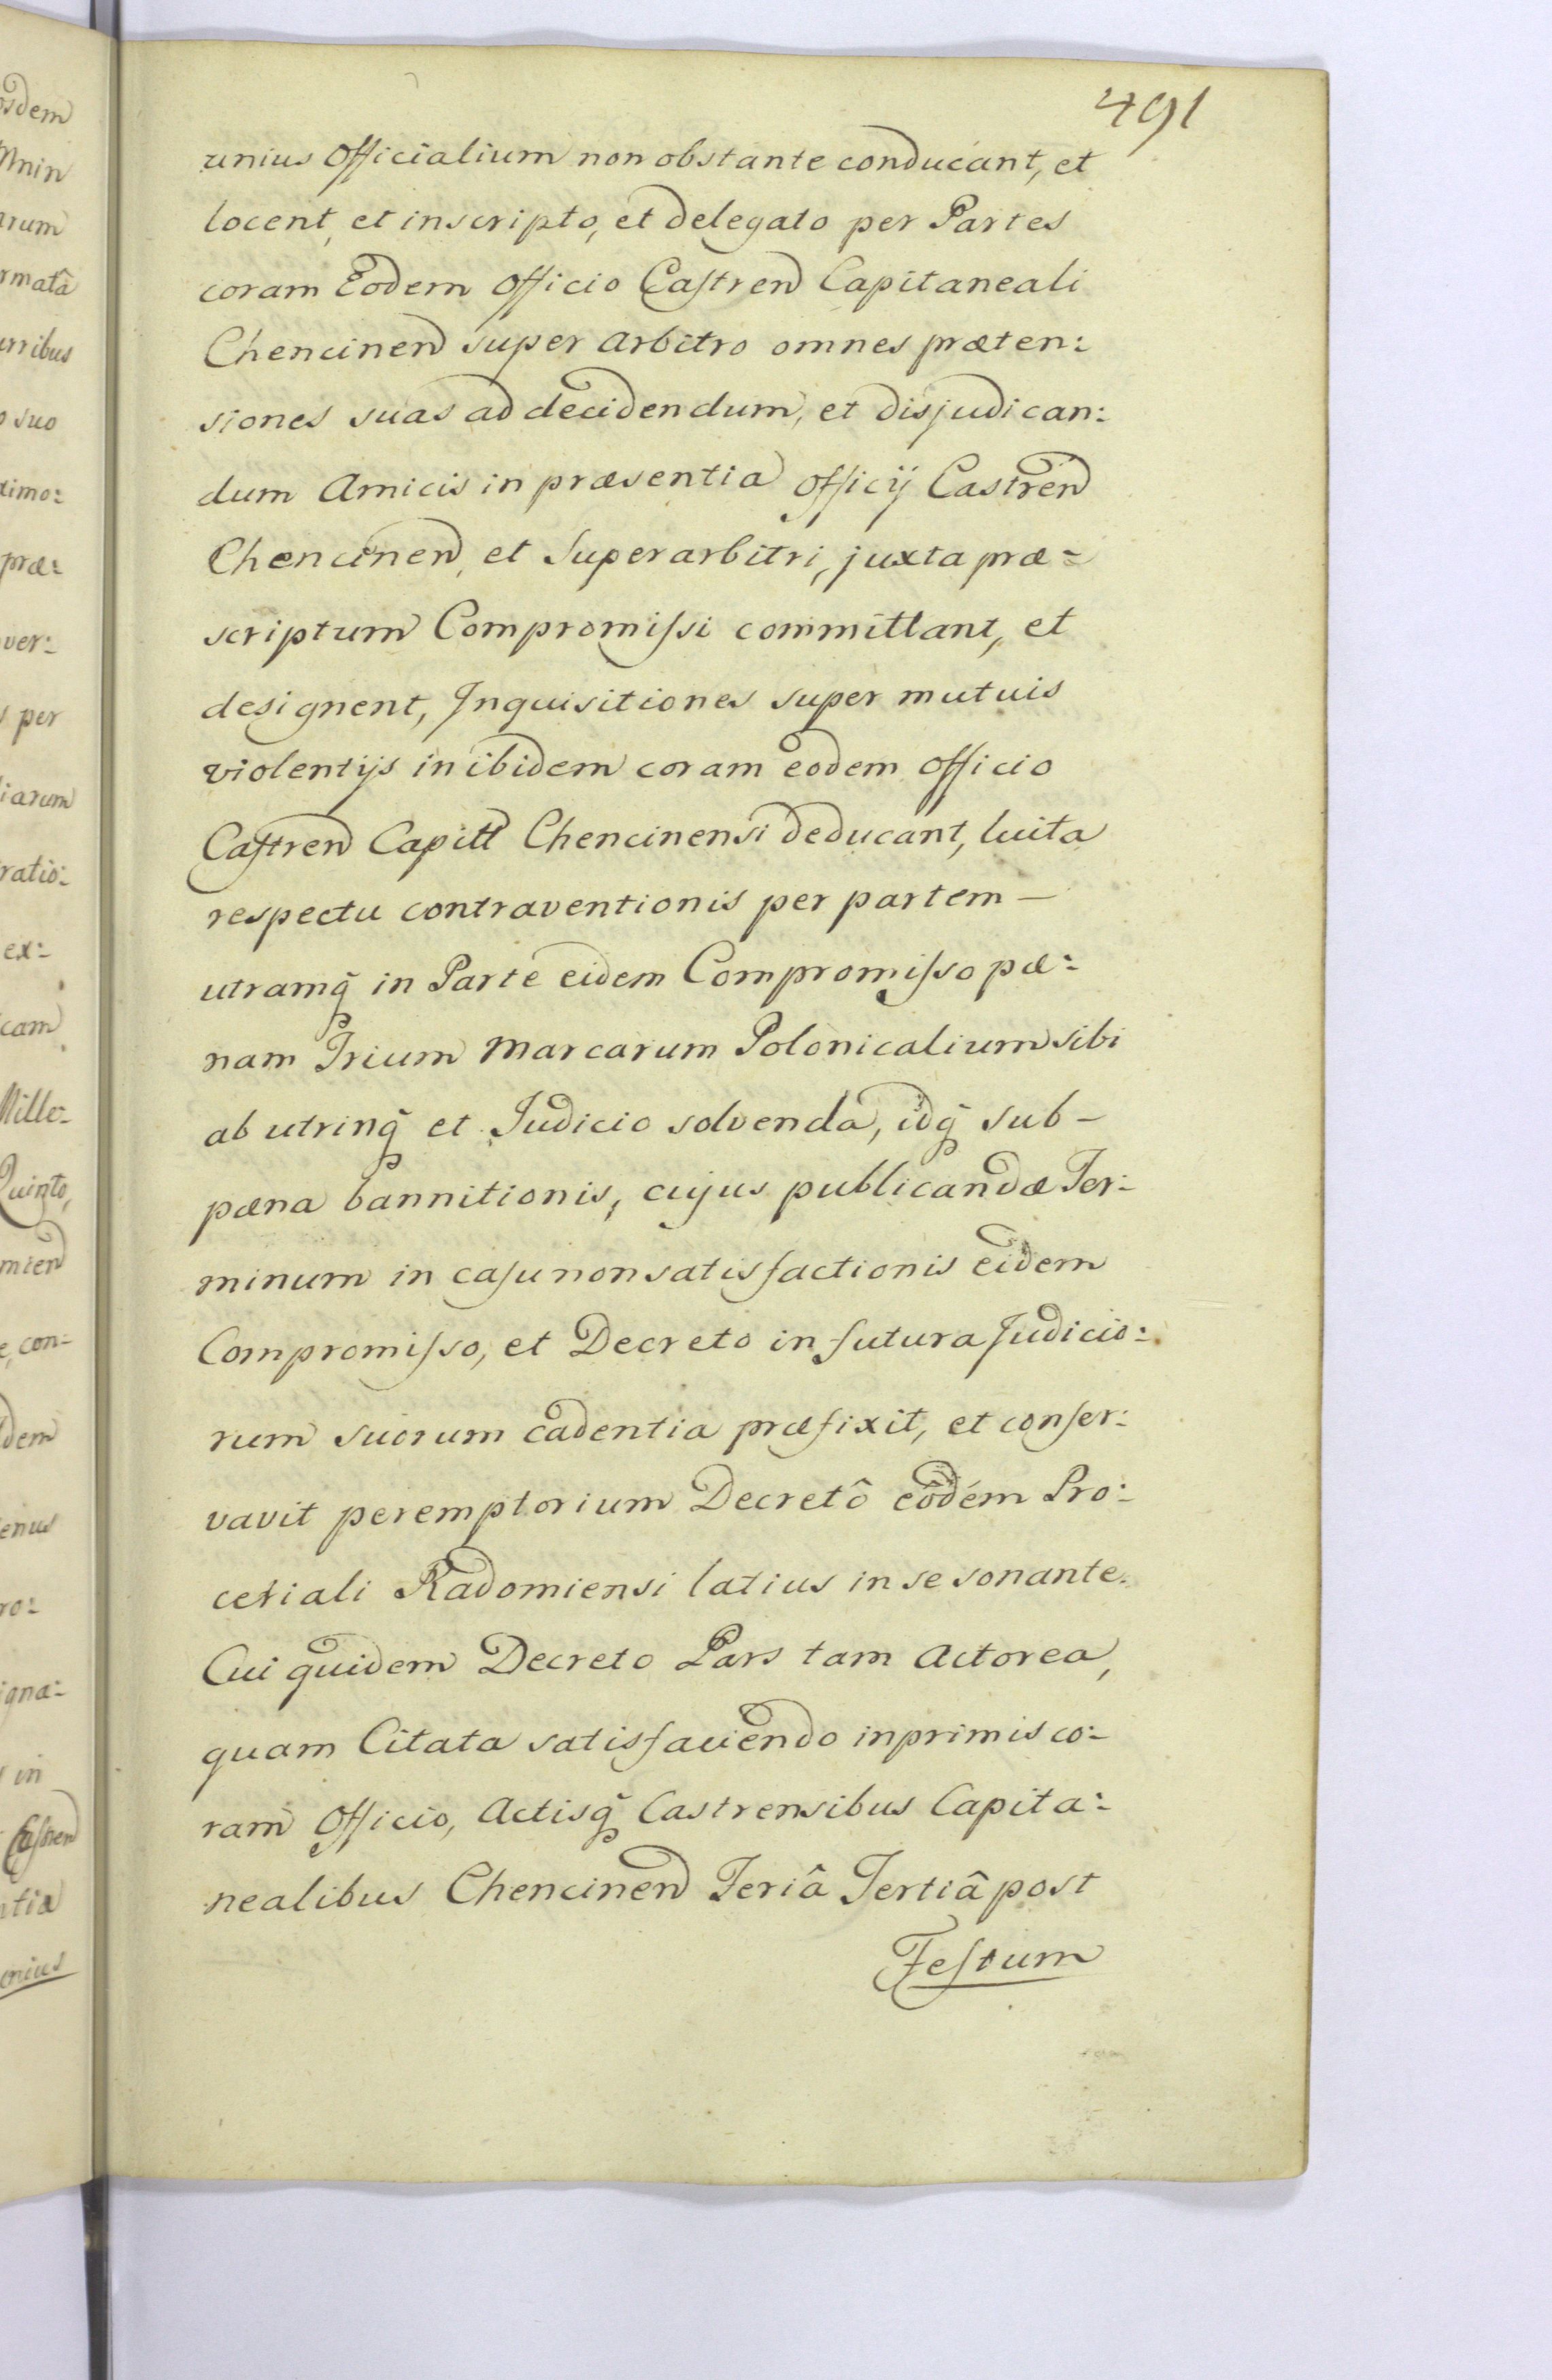 491
unius Officialium non obstante conducant, et
locent, et inscripto, et delegato per Partes
coram Eodem Officio Castren Capitaneali
Chencinen super arbitro omnes præten:
siones suas ad decidendum, et disjudican:
dum Amicis in præsentia Officÿ Castren
Chencinen, et Superarbitri, juxta præ:
scriptum Compromissi committant, et
designent, Inquisitiones super mutuis
violentijs in ibidem coram eodem Officio
Castren Capitt Chencinensi deducant, luita
respectu contraventionis per partem –
utramq̃ in Parte eidem Compromisso pæ:
nam Trium Marcarum Polonicalium sibi
ab utrinq̃ et Judicio solvenda, idq̃ sub –
pæna bannitionis, cujus publicandæ Ter:
minum in casu non satisfactionis eidem
Compromisso, et Decreto in futura Judicio:
rum suorum cadentia præfixit, et conser:
vavit peremptorium Decretô eôdém Pro:
cetiali Radomiensi latius in se sonante.
Cui quidem Decreto Pars tam Actorea,
quam Citata satisfaciendo inprimis co:
ram Officio, Actisq̃ Castrensibus Capita:
nealibus Chencinen Feriâ Tertiâ post
Festum
osdem
Mnin
arum
rmatâ
urribus
o suo
timo:
præ:
ver:
s per
liarum
ratio:
ex:
icam
Mille:
Quinto,
mien
e, con:
dem
enus
ro:
igna:
in
Castren
ntia